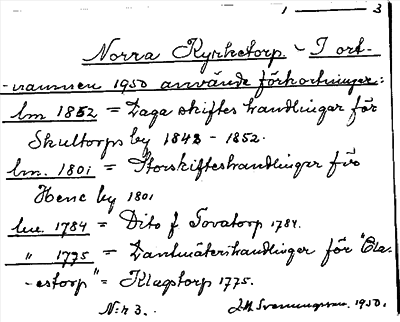 1 ——— 3
Norra Kyrketorp - I ort-
-namnen 1950 använde förkortningar:
lm 1852 = Laga skiftes handlingar för
Skultorps by 1848 - 1852.
lm. 1801 = Storskifteshandlingar för
Hene by 1801
lm. 1784 = Dito f Tovatorp 1784.
" 1775 = Lantmäterihandlingar för "Cla-
-estorp" = Klagstorp 1775.
N:r 3. 1950.